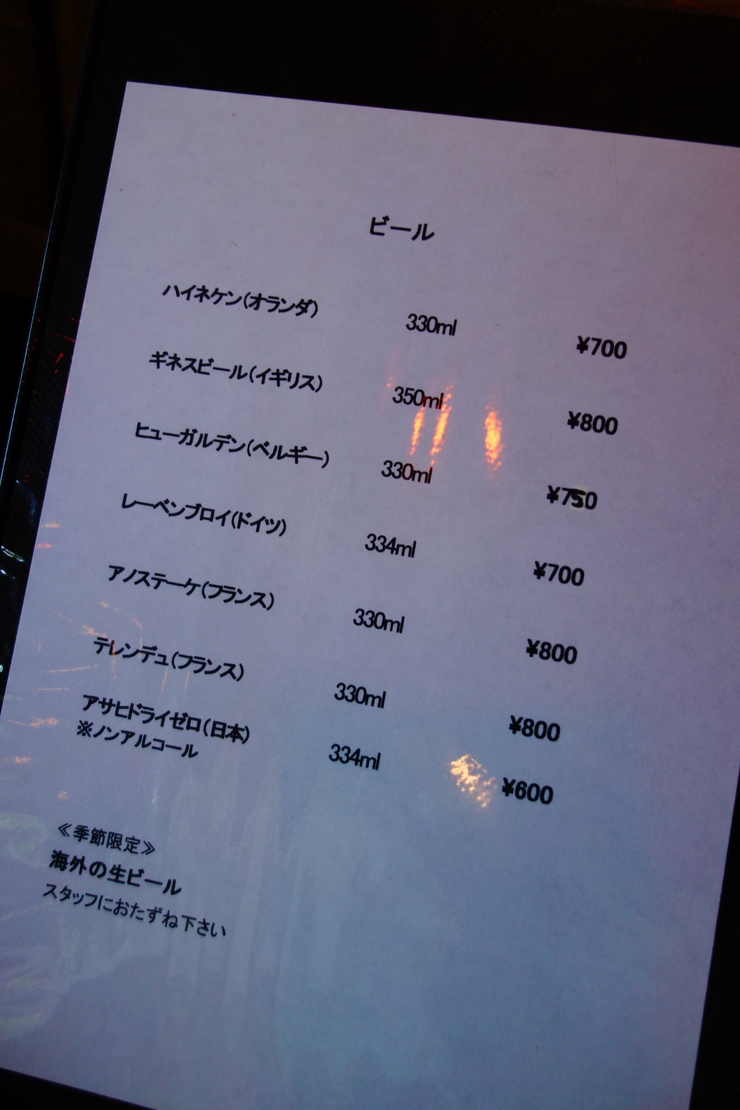 ビール
ハイネケン(オランダ) 330ml ¥700
ギネスビール(イギリス) 350ml ¥800
ヒューガルデン(ベルギー) 330ml ¥750
レーベンブロイ(ドイツ) 334ml ¥700
アノステーケ(フランス) 330ml ¥800
テレンデュ(フランス) 330ml ¥800
アサヒドライゼロ(日本) 334ml ¥600
※ノンアルコール
≪季節限定≫
海外の生ビール
スタッフにおたずね下さい